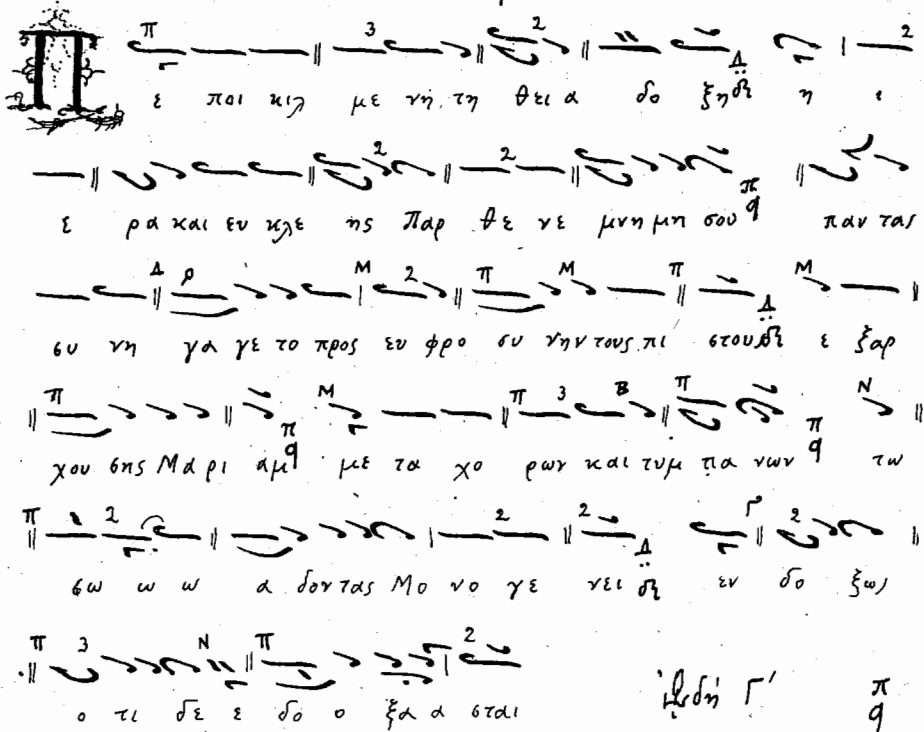 Π ε ποι κιλ με νη τη θει α δο ξη η ι
ε ρα και ευ κλε ης Παρ θε νε μνη μη σου παν τας
συ νη γα γε το προς ευ φρο συ νην τους πι στους ε ξαρ
χου σης Μα ρι αμ με τα χο ρων και τυμ πα νων τω
σω ω ω α δον τας Μο νο γε νει εν δο ξως
ο τι δε ε δο ο ξα α σται
ᾠδή Γ'